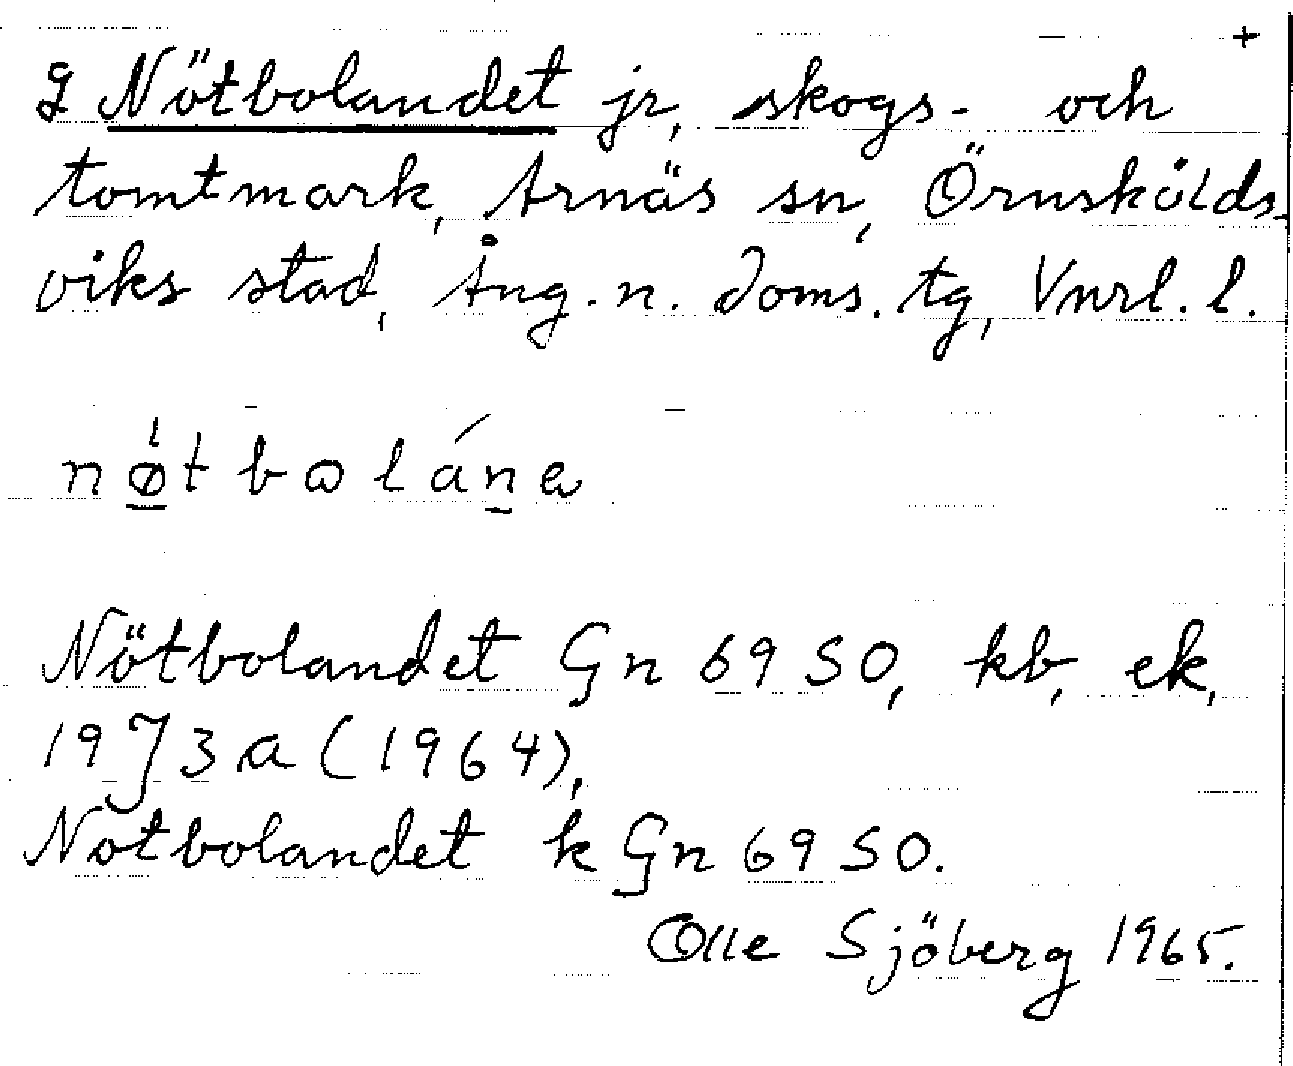 +
g Nötbolandet jr, skogs- och
tomtmark, Arnäs sn, Örnskölds-
viks stad, Ång. n. doms. tg, Vnrl. l.
nø̲tbωláṉa
Nötbolandet Gn 69 SO, kb, ek,
19 J 3 a (1964),
Notbolandet k Gn 69 SO.
Olle Sjöberg 1965.